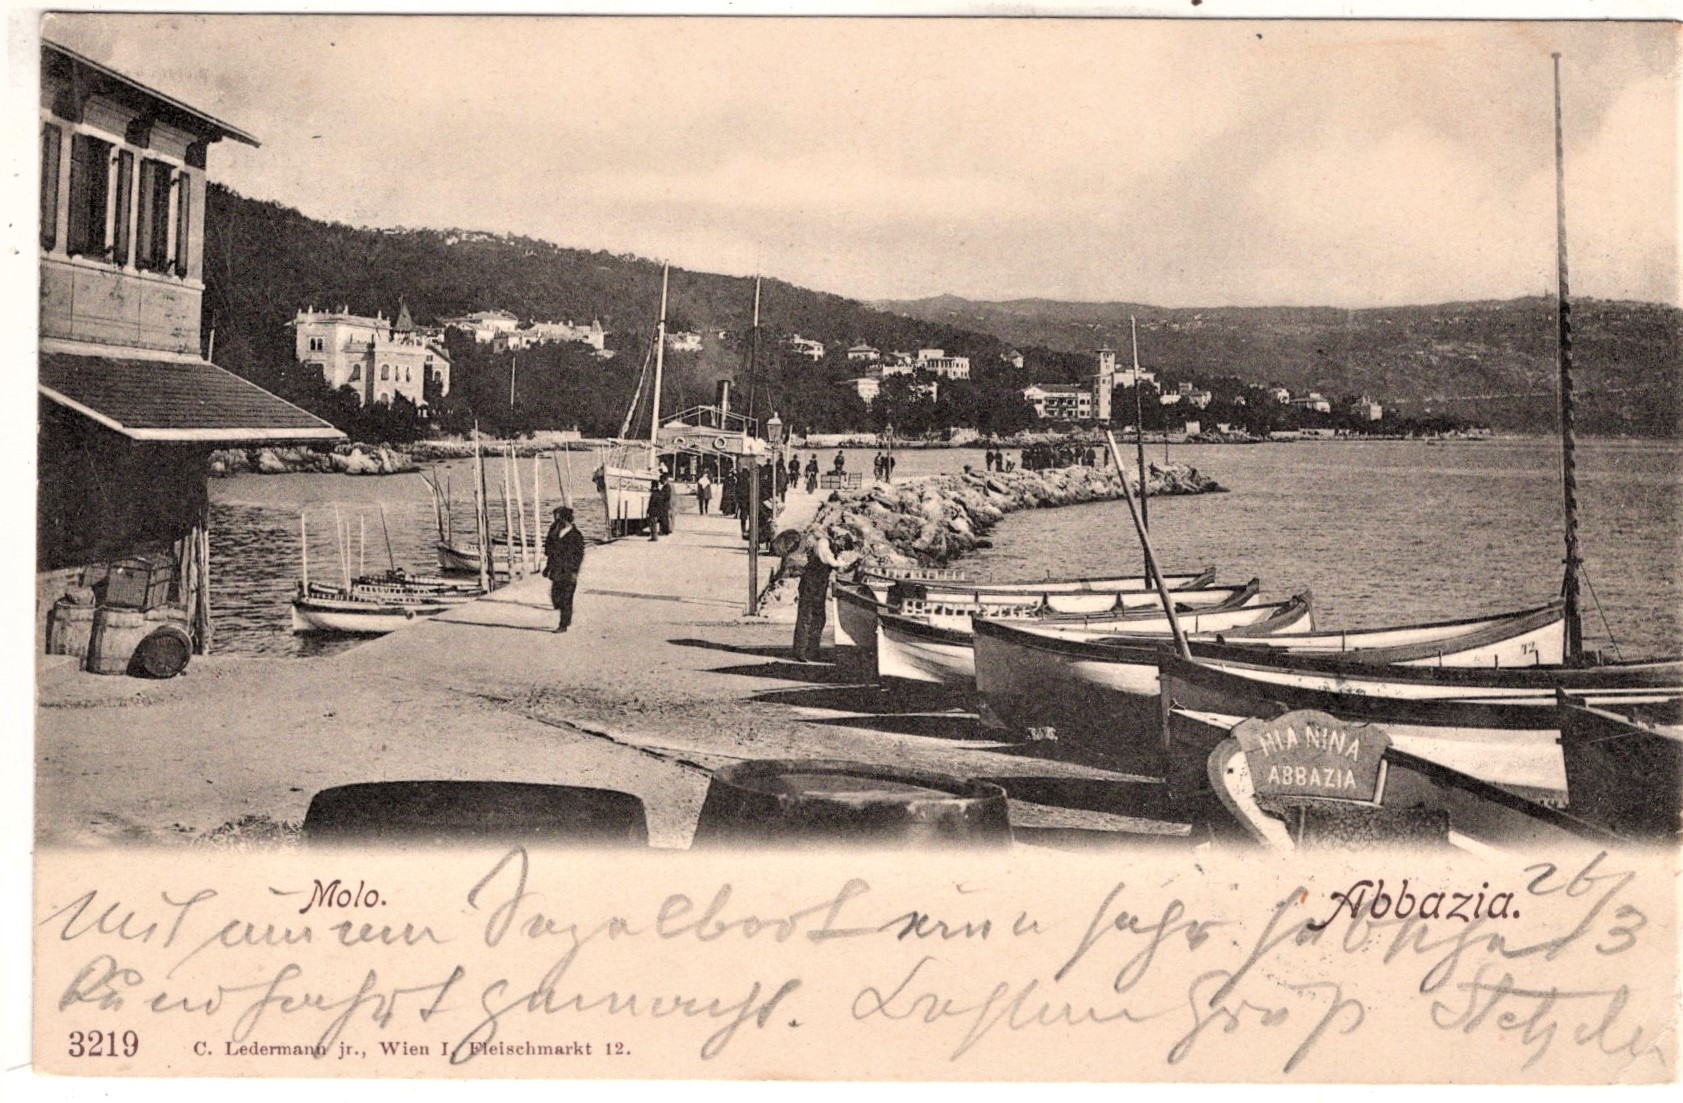 12
MIA NINA
ABBAZIA
Molo.
Abbazia. 26/3
Mit einem Segelboot eine sehr hübsche
Rundfahrt gemacht. Besten Gruß
3219
C. Ledermann jr., Wien I, Fleischmarkt 12.